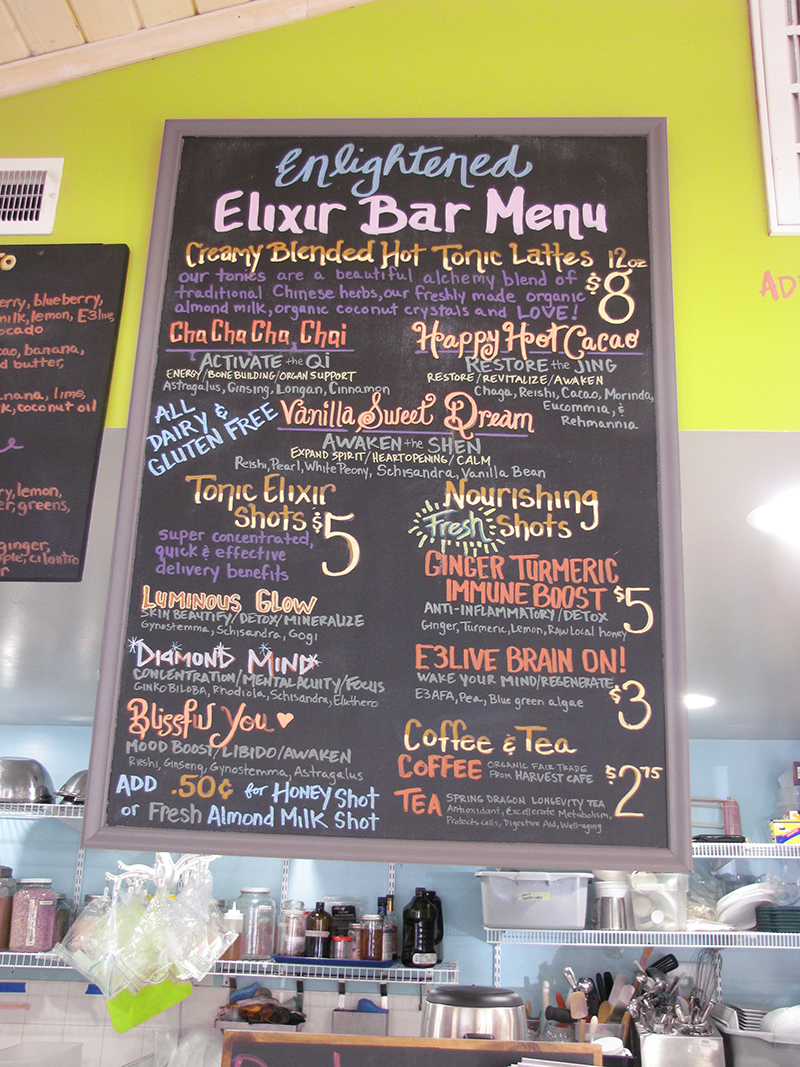 Enlightened
Elixir Bar Menu
Creamy Blended Hot Tonic Lattes 12oz
our tonics are a beautiful alchemy blend of
traditional Chinese herbs, our freshly made organic
almond milk, organic coconut crystals and LOVE!
$8
Cha Cha Cha Chai
ACTIVATE the Qi
ENERGY/BONE BUILDING/ORGAN SUPPORT
Astragalus, Ginsing, Longan, Cinnamon
Happy Hot Cacao
RESTORE the JING
RESTORE/REVITALIZE/AWAKEN
Chaga, Reishi, Cacao, Morinda,
Eucommia, &
Rehmannia
ALL
DAIRY &
GLUTEN FREE
Vanilla Sweet Dream
AWAKEN the SHEN
EXPAND SPIRIT/HEART OPENING/CALM
Reishi, Pearl, White Peony, Schisandra, Vanilla Bean
Tonic Elixir
Shots $5
super concentrated,
quick & effective
delivery benefits
LUMINOUS GLOW
SKIN BEAUTIFY/DETOX/MINERALIZE
Gynostemma, Schisandra, Gogi
DIAMOND MIND
CONCENTRATION/MENTAL ACUITY/FOCUS
GINKO BILOBA, Rhodiola, Schisandra, Eluthero
Blissful You
MOOD BOOST/LIBIDO/AWAKEN
Rieshi, Ginseng, Gynostemma, Astragalus
ADD .50¢ for HONEY SHOT
or Fresh Almond Milk Shot
Nourishing
Fresh Shots
GINGER TURMERIC
IMMUNE BOOST $5
ANTI-INFLAMMATORY/DETOX
Ginger, Turmeric, Lemon, Raw Local honey
E3LIVE BRAIN ON!
WAKE YOUR MIND/REGENERATE
E3AFA, Pea, Blue green algae
$3
Coffee & Tea
COFFEE ORGANIC FAIR TRADE
FROM HARVEST CAFE
$2.75
TEA SPRING DRAGON LONGEVITY TEA
Antioxidant, Excellerate Metabolism,
Protects Cells, Digestive Aid, Well-aging
erry, blueberry,
milk, lemon, E3live,
ocado
cao, banana,
d butter,
nana, lime,
k, coconut oil
ry, lemon,
er, greens,
ginger,
ple, cilantro
AD